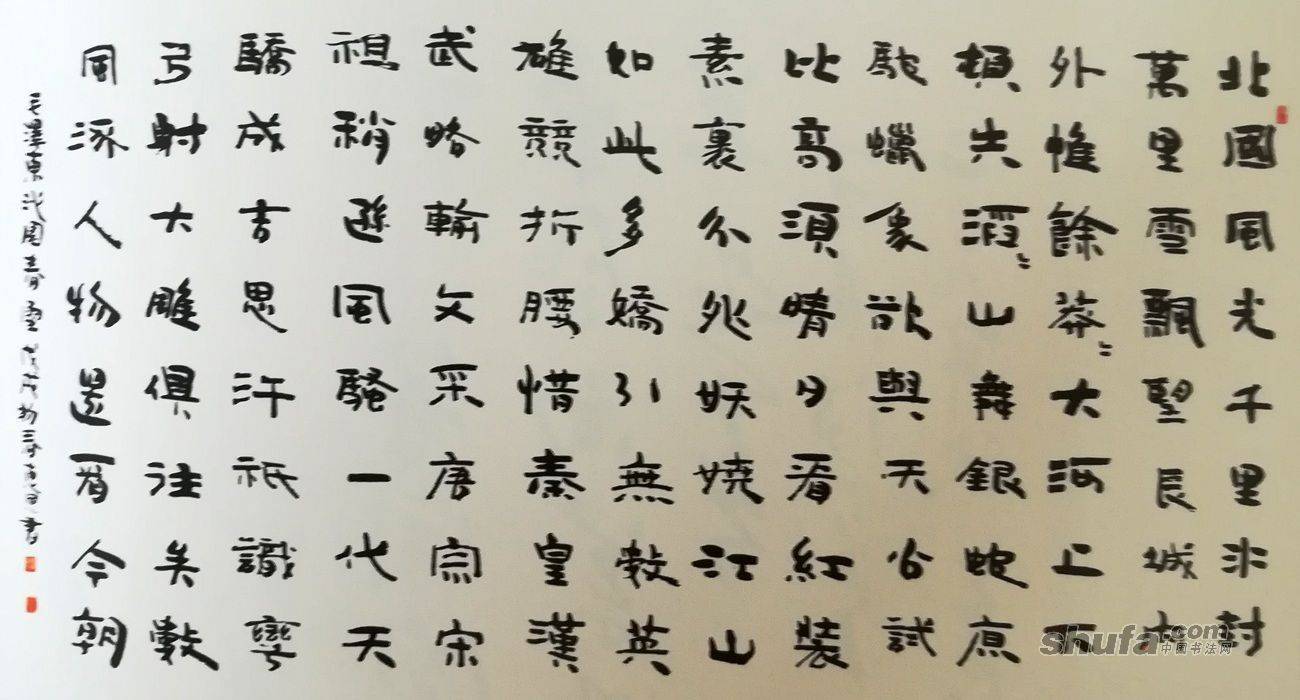 北國風光千里冰封
萬里雪飄望長城內
外惟餘莽〻大河上下
頓失滔〻山舞銀蛇原
馳蠟象欲與天公試
比高須晴日看紅裝
素裹分外妖嬈江山
如此多嬌引無數英
雄競折腰惜秦皇漢
武略輸文采唐宗宋
祖稍遜風騷一代天
驕成吉思汗祇識彎
弓射大雕俱往矣數
風流人物還看今朝
毛澤東沁園春雪 戊戌初 書
shufa.com
中国书法网